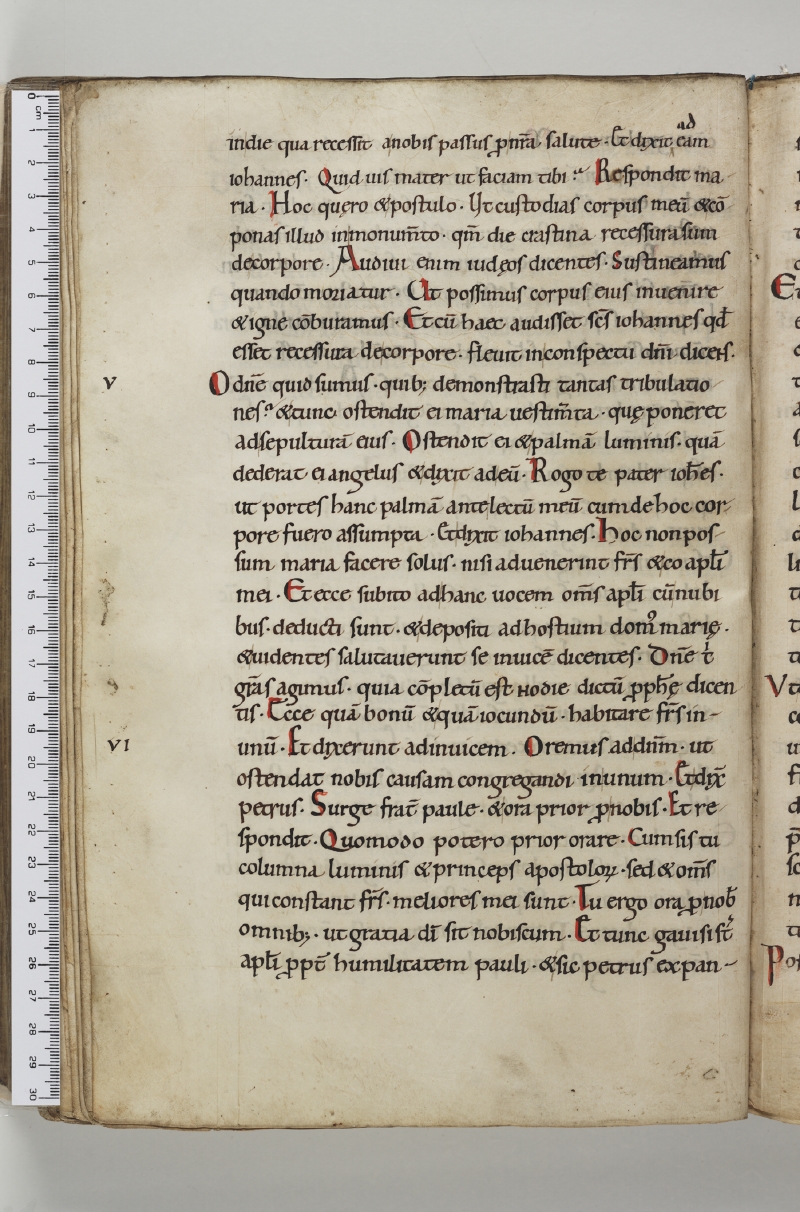 indie qua recessit anobis passus ꝓnr̄a salute · Et dixit ad eam
iohannes · Quid uis mater ut faciam tibi : Respondit ma
ria · Hoc quęro &postulo · Ut custodias corpus meū &cō
ponas illud inmonum̄to · qm̄ die crastina recessura sum
decorpore · Audiui enim iudęos dicentes · Sustineamus
quando moriatur · Ut possimus corpus eius inuenire
&igne cōburamus · Et cū haec audisset scs̄ iohannes qđ
esset recessura decorpore · fleuit inconspectu dn̄i dicens ·
V
O dn̄e quid sumus · quib; demonstrasti tantas tribulatio
nes &tunc ostendit ei maria uestim̄ta · quę poneret
adsepulturā eius · Ostendit ei &palmā luminis · quā
dederat ei angelus &dixit adeū · Rogo te pater ioh̄es ·
ut portes hanc palmā antelectū meū cumdehoc cor
pore fuero assumpta · Et dixit iohannes · Hoc non pos
sum maria facere solus · nisi aduenerint fr̄s &coapl̄i
mei · Et ecce subito adhanc uocem om̄s apl̄i cūnubi
bus · deducti sunt · &depositi adhostium domꝰ marię ·
&uidentes salutauerunt se inuicē dicentes · Dn̄e t̄
gr̄as agimus · quia cōpletū est hodie dictū ꝓph̄ę dicen
tis · Ecce quā bonū &quā iocundū · habitare fr̄s in-
VI
unū · Et dixerunt adinuicem · Oremus addn̄m · ut
ostendat nobis causam congregandi inunum · Et dix̄
petrus · Surge frat̄ paule · &ora prior ꝓnobis · Et re
spondit · Quomodo potero prior orare · Cum sis tu
columna luminis &princeps apostoloꝝ · sed &om̄s
qui constant fr̄s · meliores mei sunt · Tu ergo ora ꝓnob̄
omnib; · ut gratia dī sit nobiscum · Et tunc gauisi st̄
apl̄i ꝓpt̄ humilitatem pauli · &sic petrus expan-